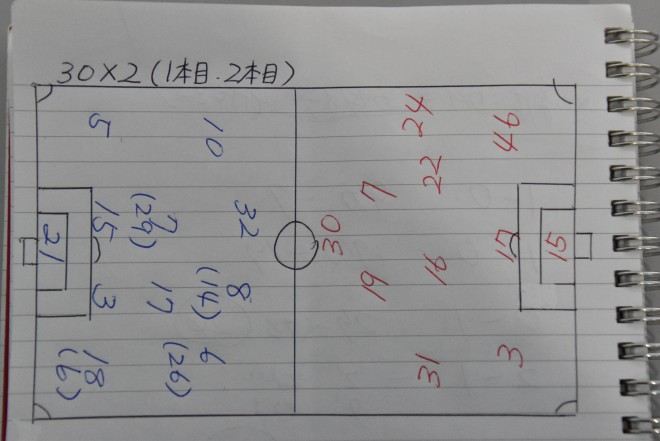 30×2(1本目.2本目)
5
10
7
(29)
15
32
21
3
17
8
(14)
18
(6)
6
(26)
24
46
22
7
30
17
15
19
16
31
3